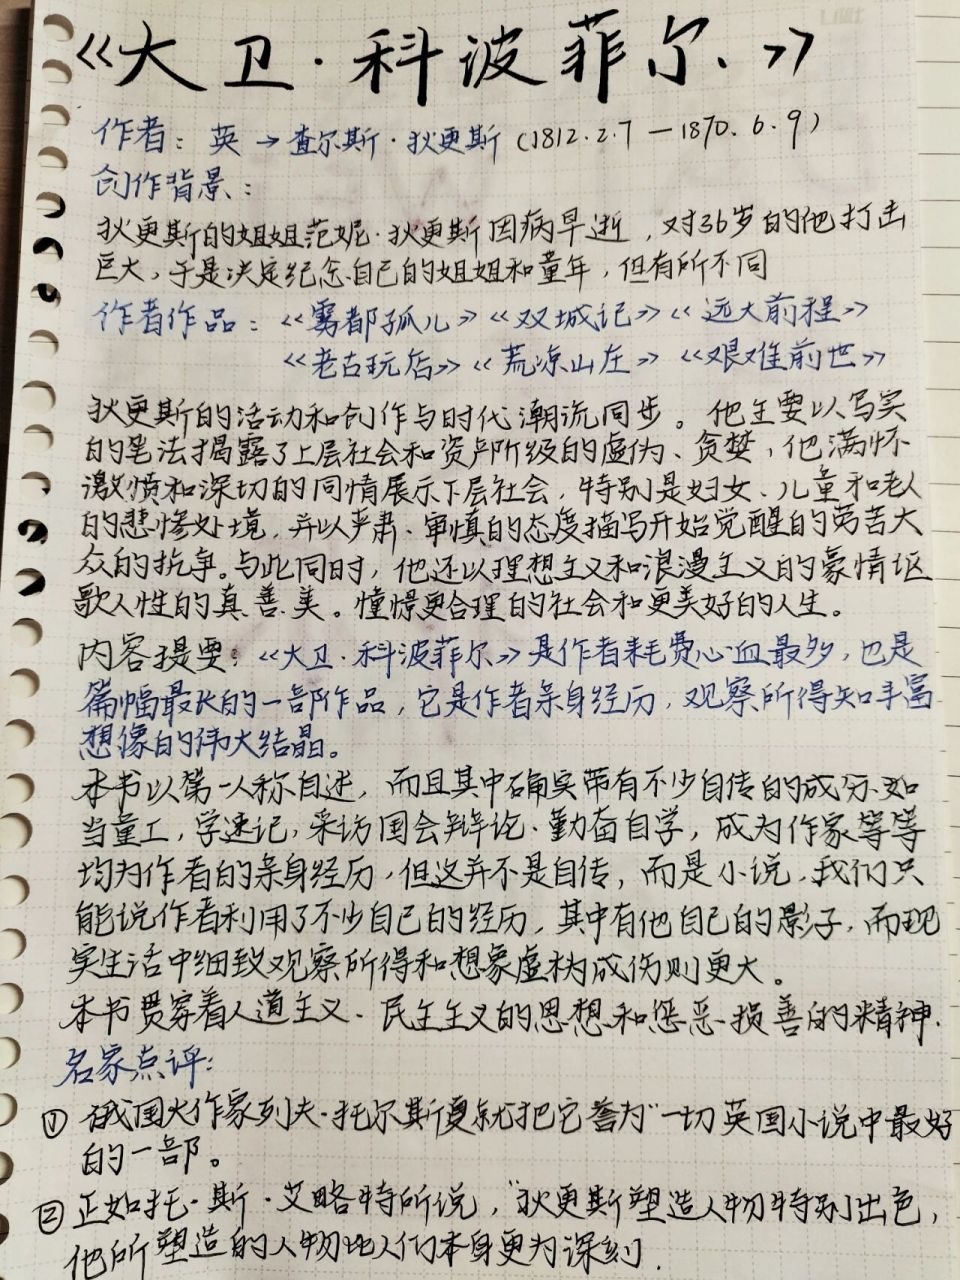 《大卫·科波菲尔》
作者：英→查尔斯·狄更斯（1812.2.7—1870.6.9）
创作背景：
狄更斯的姐姐范妮·狄更斯因病早逝，对36岁的他打击
巨大，于是决定纪念自己的姐姐和童年，但有所不同
作者作品：《雾都孤儿》《双城记》《远大前程》
《老古玩店》《荒凉山庄》《艰难前世》
狄更斯的活动和创作与时代潮流同步。他主要以写实
的笔法揭露了上层社会和资产阶级的虚伪、贪婪，他满怀
激愤和深切的同情展示下层社会，特别是妇女、儿童和老人
的悲惨处境，并以严肃、审慎的态度描写开始觉醒的劳苦大
众的抗争。与此同时，他还以理想主义和浪漫主义的豪情讴
歌人性的真、善、美。憧憬更合理的社会和更美好的人生。
内容提要：《大卫·科波菲尔》是作者耗费心血最多，也是
篇幅最长的一部作品，它是作者亲身经历，观察所得和丰富
想像的伟大结晶。
本书以第一人称自述，而且其中确实带有不少自传的成分.如
当童工，学速记，采访国会辩论、勤奋自学，成为作家等等
均为作者的亲身经历，但这并不是自传，而是小说，我们只
能说作者利用了不少自己的经历，其中有他自己的影子，而现
实生活中细致观察所得和想象虚构成份则更大。
本书贯穿着人道主义、民主主义的思想和惩恶损善的精神.
名家点评：
① 俄国大作家列夫·托尔斯夏就把它誉为“一切英国小说中最好
的一部。
② 正如托·斯·艾略特所说，“狄更斯塑造人物特别出色，
他所塑造的人物比人们本身更为深刻.